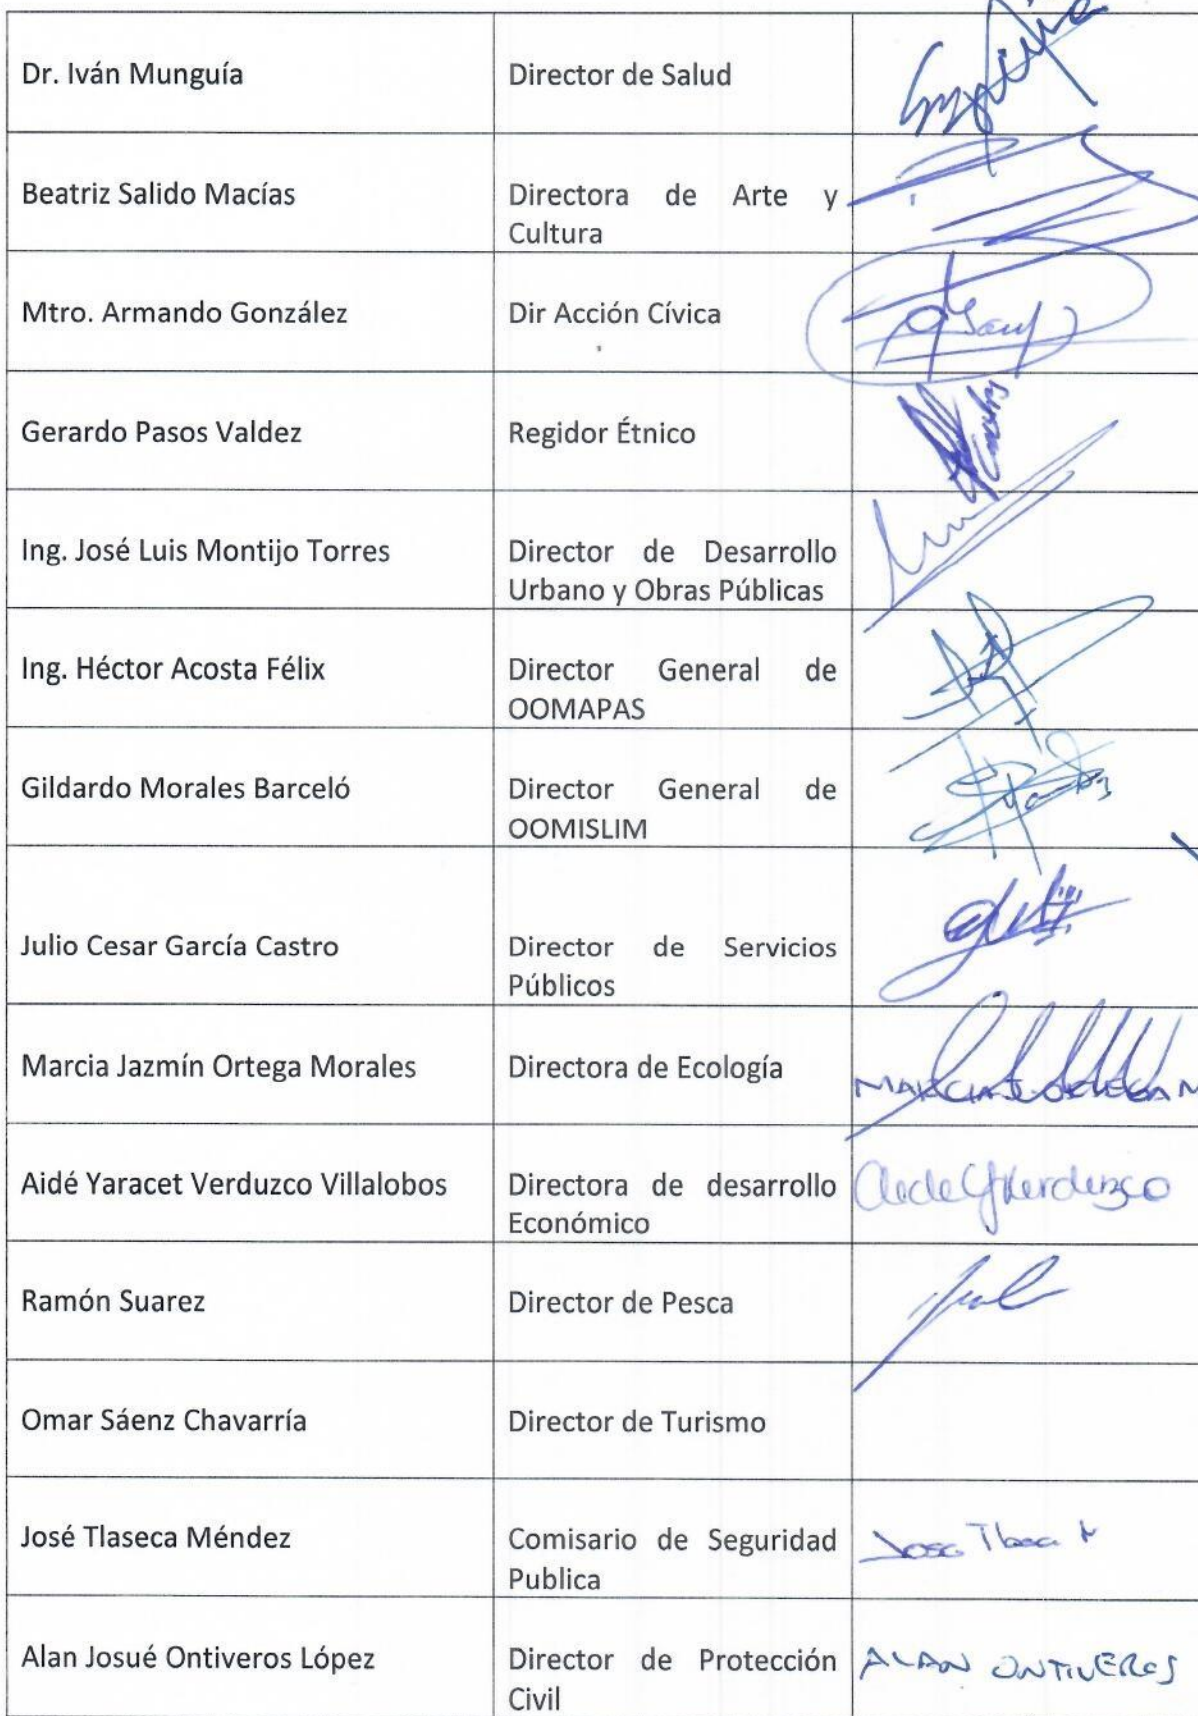 Dr. Iván Munguía
Director de Salud
Beatriz Salido Macías
Directora de Arte y
Cultura
Mtro. Armando González
Dir Acción Cívica
Gerardo Pasos Valdez
Regidor Étnico
Ing. José Luis Montijo Torres
Director de Desarrollo
Urbano y Obras Públicas
Ing. Héctor Acosta Félix
Director General de
OOMAPAS
Gildardo Morales Barceló
Director General de
OOMISLIM
Julio Cesar García Castro
Director de Servicios
Públicos
Marcia Jazmín Ortega Morales
Directora de Ecología
MARCIA J. ORTEGA M
Aidé Yaracet Verduzco Villalobos
Directora de desarrollo
Económico
Ramón Suarez
Director de Pesca
Omar Sáenz Chavarría
Director de Turismo
José Tlaseca Méndez
Comisario de Seguridad
Publica
Alan Josué Ontiveros López
Director de Protección
Civil
ALAN ONTIVEROS